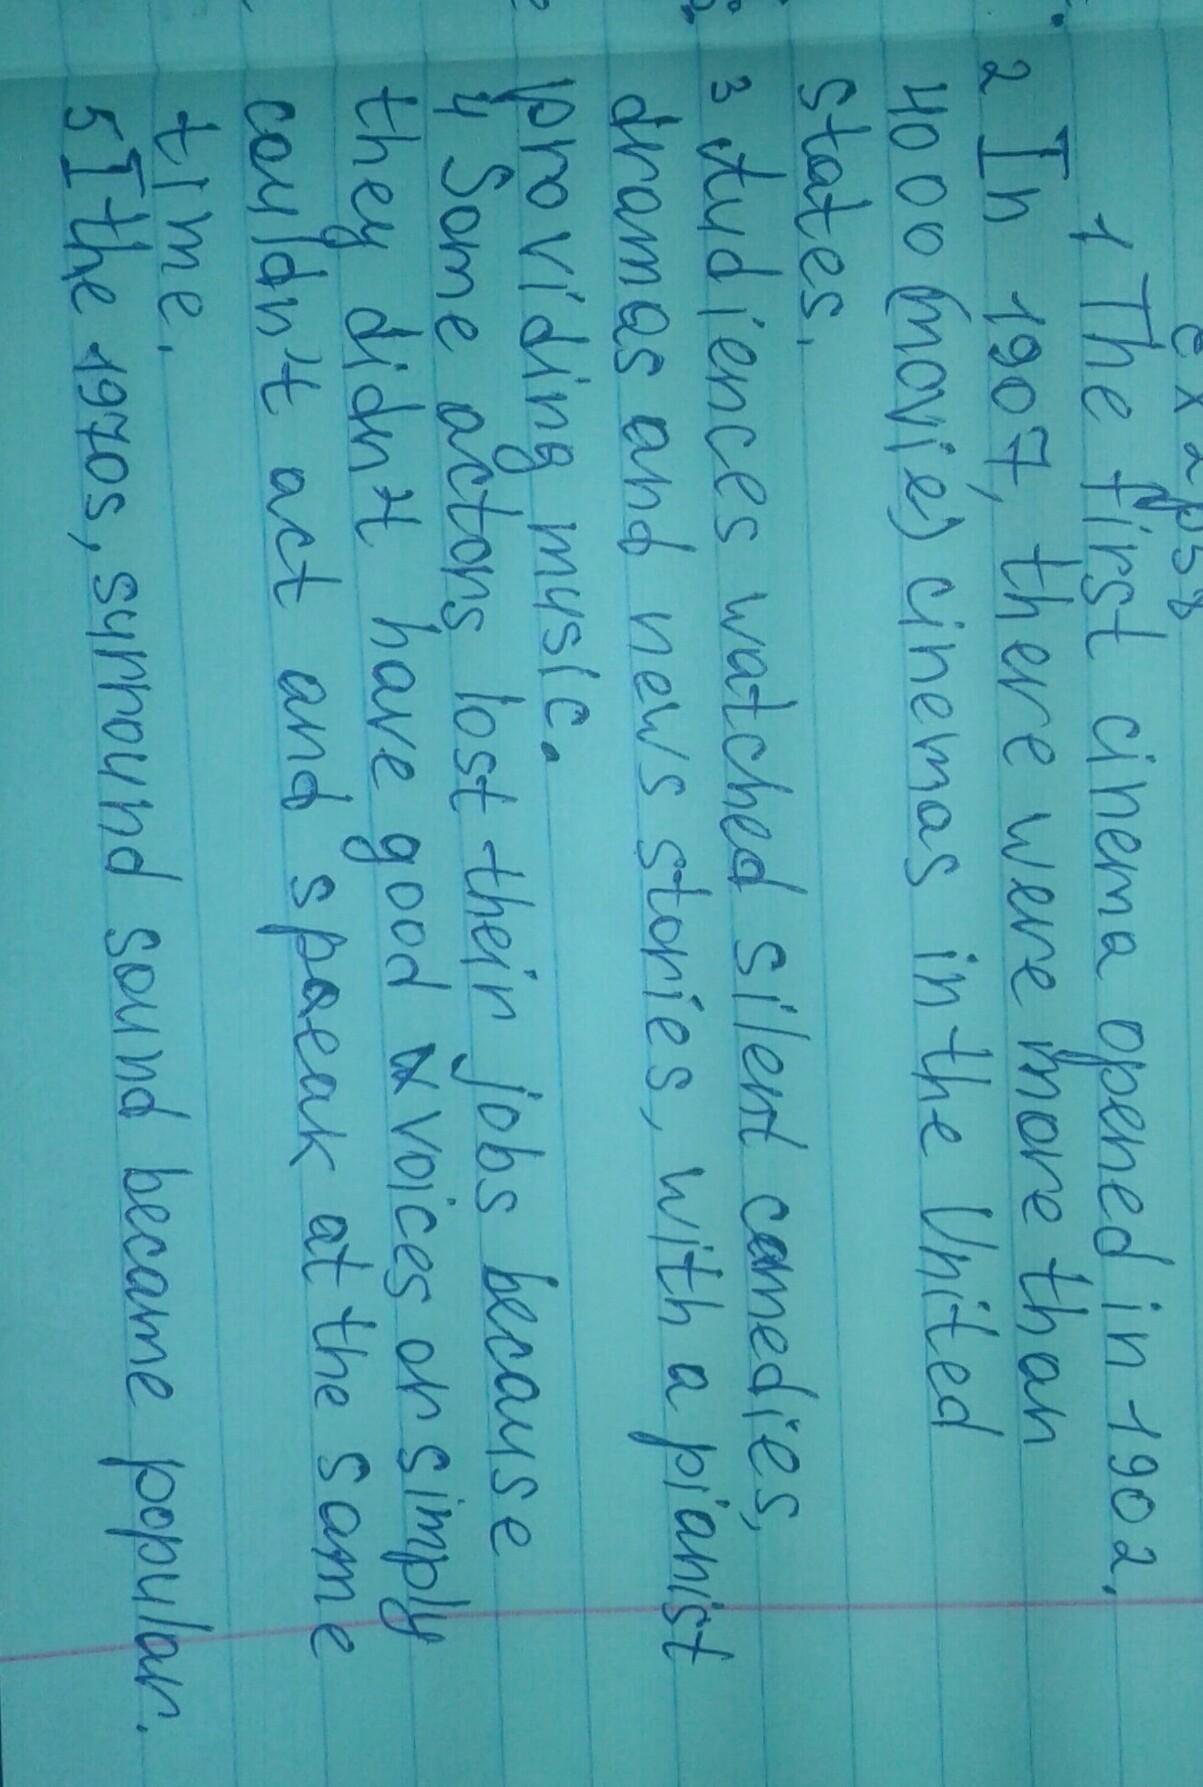 ex 2 p 58
1 The first cinema opened in 1902.
2 In 1907, there were more than
4000 (movie) cinemas in the United
States.
3 Audiences watched silent comedies,
dramas and news stories, with a pianist
providing music.
4 Some actors lost their jobs because
they didn't have good voices or simply
couldn't act and speak at the same
time.
5 I the 1970s, surround sound became popular.